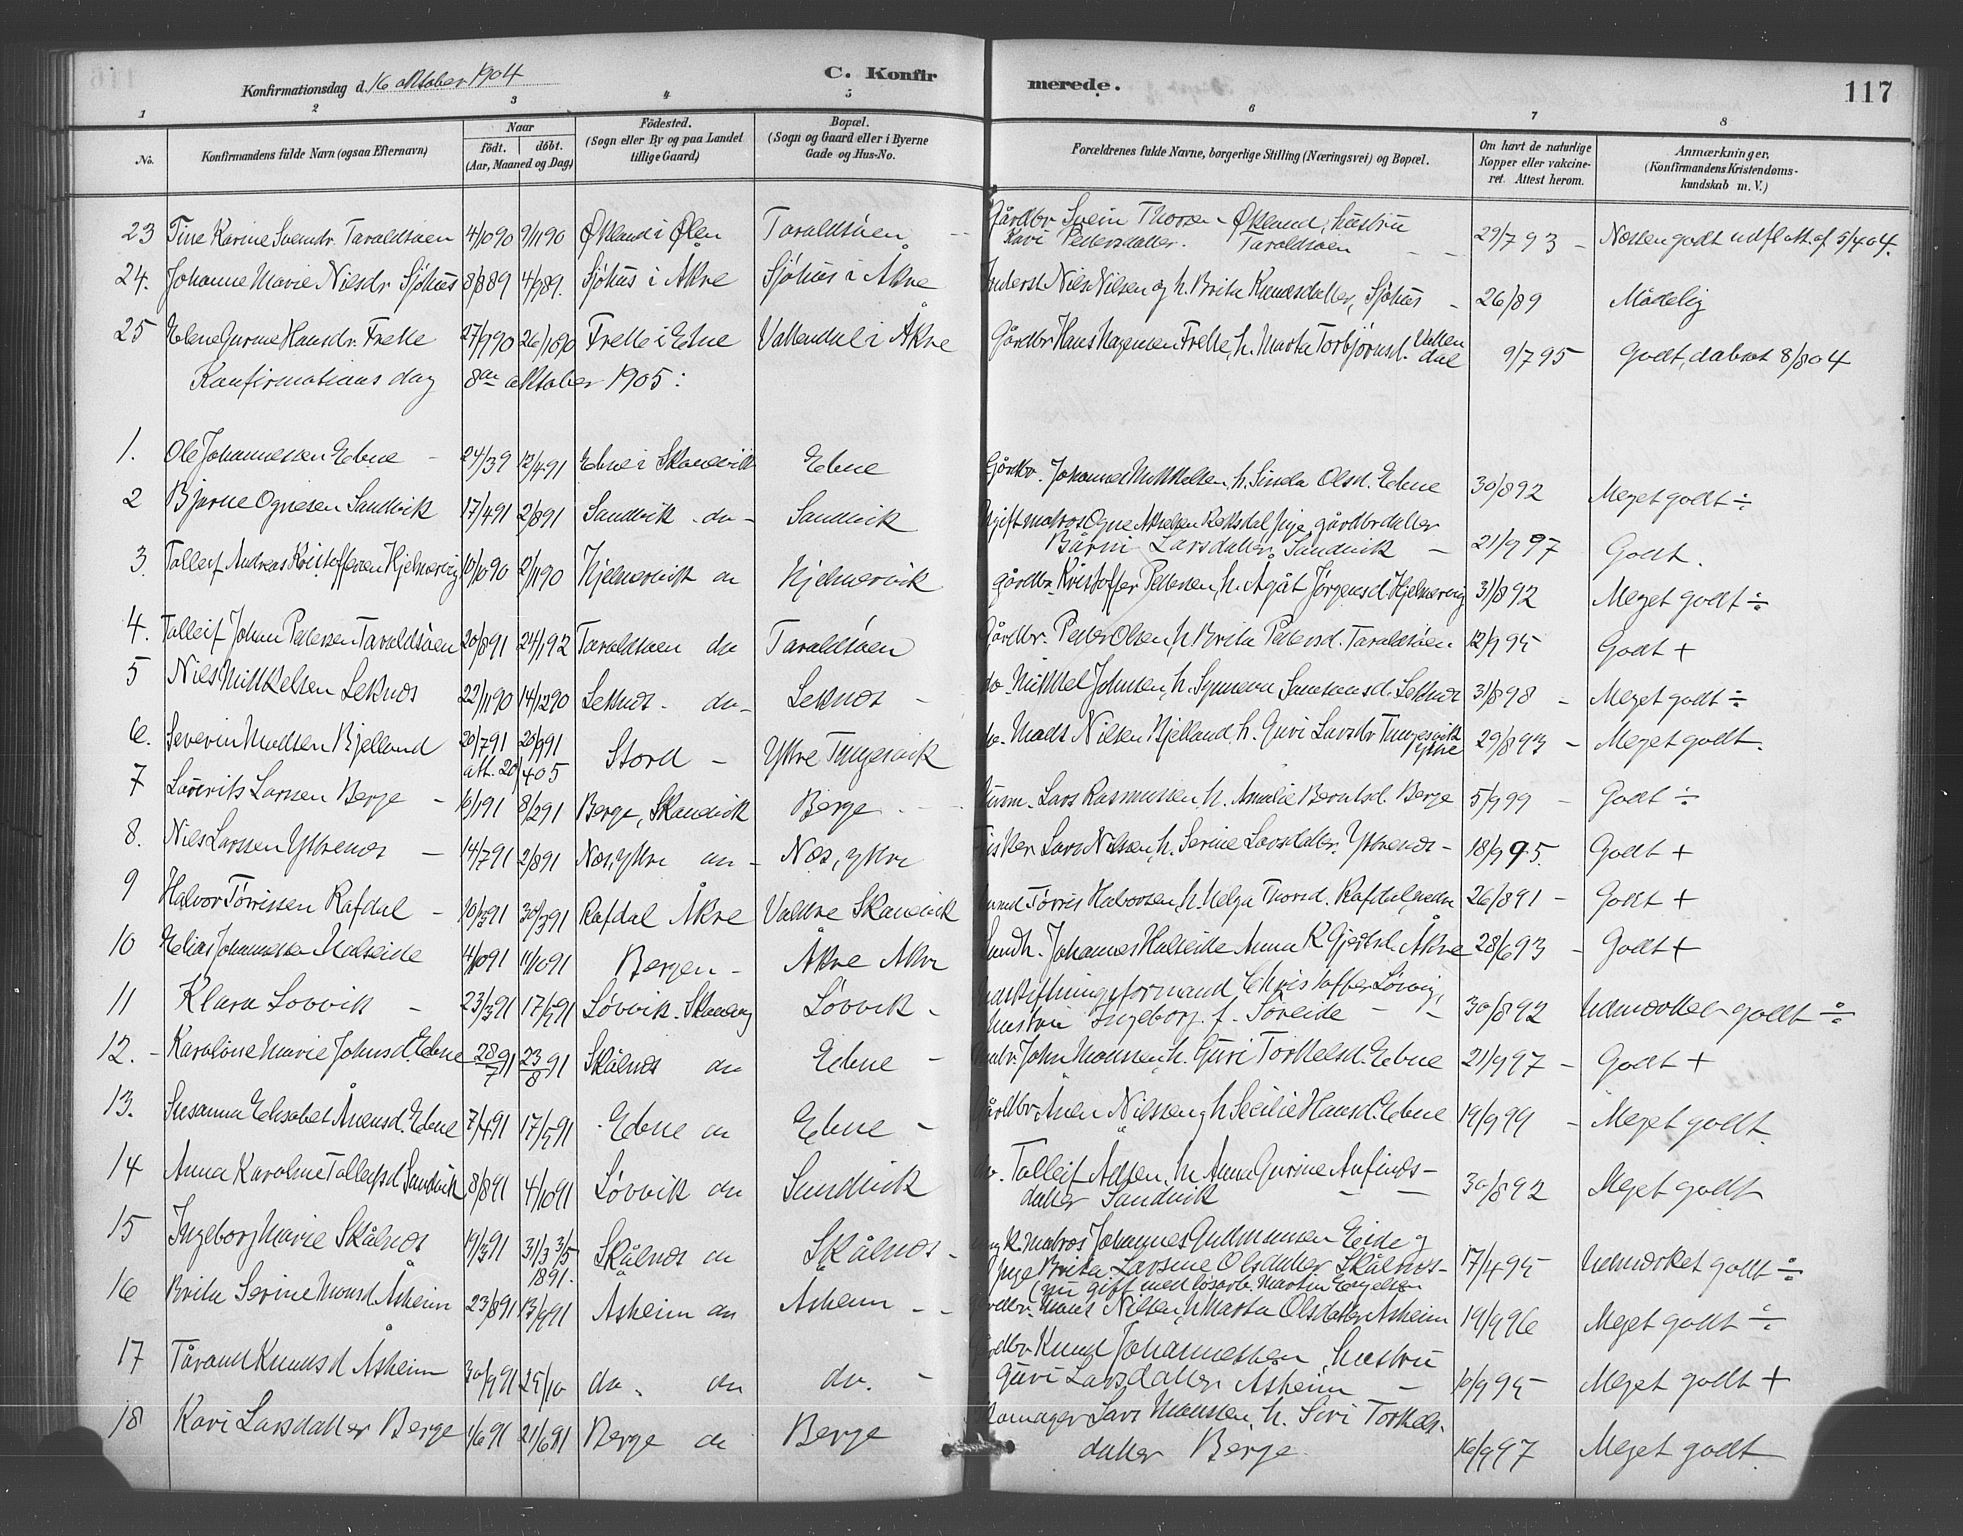 Konfirmationsdag d. 16 oktober 1904
C. Konfir
merede.
117
1 2 3 4 5 6 7 8
No.
Konfirmandens fulde Navn (ogsaa Efternavn)
Naar
født. døbt.
(Aar, Maaned og Dag)
Fødested.
(Sogn eller By og paa Landet
tillige Gaard)
Bopæl.
(Sogn og Gaard eller i Byerne
Gade og Hus-No.
Forældrenes fulde Navne, borgerlige Stilling (Næringsvei) og Bopæl.
Om havt de naturlige
Kopper eller vakcine-
ret. Attest herom.
Anmærkninger,
(Konfirmandens Kristendoms-
kundskab m. V.)
23 Tine Karine Sveindr. Taraldsøen 4/10 90 9/11 90 Økland i Ølen Taraldsøen Gårdbr Svein Thorsen Økland, hustru
Kari Pedersdatter. Taraldsøen 29/7 93 - Næsten godt udfl. att. af 5/4 04.
24. Johanne Marie Nilsdr Sjøhus 8/8 89 4/9 89. Sjøhus i Åkre Sjøhus i Åkre Inderst Nils Nilsen og h. Brita Knudsdatter, Sjøhus - 26/89 Mådelig
25 Elene Gurine Hansdr. Frette 27/9 90 26/10 90 Frette i Edne Vattendal i Åkre Gårdbr Hans Mogensen Frette, h. Marta Torbjørnsd. Vatten
dal 9/7 95 Godt, dabsat 8/8 04
Konfirmationsdag 8de oktober 1905:
1. Ole Johannessen Edne - 24/3 9 12/4 91 Edne i Skonevik Edne Gårdbr. Johannes Mikkelsen, h. Sissela Olsd. Edne 30/8 92 Meget godt ÷
2 Bjarne Ognesen Sandvik 17/4 91 2/8 91 Sandvik do - Sandvik Ugift matros Ogne Akselsen Reksdal, pige gårdbrdatter
Bårni Larsdatter Sandvik - 21/9 97 Godt.
3. Talleif Andreas Kristoffersen Hjelmevig 10/10 90 2/11 90 Hjelmervik do Hjelmervik gårdbr. Kristoffer Pedersen, h. Agåt Jørgensd. Hjelmevig 31/8 92 Meget godt ÷
4. Talleif Johan Pedersen Taraldsøen 20/8 91 24/1 92 Taraldsøen do Taraldsøen Gårdbr. Peder Olsen, h. Brita Pedersd. Taraldsøen 12/9 95 Godt +
5 Nils Mikkelsen Leknes 22/11 90 14/12 90 Leknes - do - Leknes - do Mikkel Johnsen, h. Synneva Samsonsd. Leknes 31/8 98 - Meget godt ÷
6. Severin Madsen Bjelland 20/7 91 20/9 91
att. 20/4 05 Stord - Ytre Tungesvik do. Mads Nilsen Bjelland, h. Guri Larsdr Tungesvik
ytre 29/8 93 - Meget godt.
7 Laurits Larsen Berge - 10/1 91 8/2 91 Berge, Skonevik Berge - Husm. Lars Rasmussen, h. Amalie Berntsd. Berge 5/9 99 - Godt ÷
8. Nils Larsen Ytrenes - 14/7 91 2/8 91 Næs, ytre do - Næs, ytre Fisker Lars Nilsen, h. Serine Larsdatter. Ytrenes - 18/9 95. Godt +
9 Halvor Tørrissen Rafdal - 10/3 91 30/3 91 Rafdal Åkre Valdre Skonevik Tørris Halvorsen, h. Helga Thorsd. Rafdal, nedre 26/8 91 - Godt +
10 Elias Johannessen Halseide 4/10 91 11/10 91 Bergen - Åkre Åkre Landh. Johannes Halseide Anna K Gjertsd. Åkre 28/6 93 - Godt +
11 Klara Løvvik - 23/3 91 17/5 91 Løvvik. Skonevig Løvvik - Udskiftningsformand Christoffer Løvvig,
hustru Ingeborg f. Søreide - - 30/8 92 Udmærket godt ÷
12. - Karoline Marie Johnsd. Edne 28/7 91 23/8 91 Skålnes do Edne - Gårdbr. John Monssen, h. Guri Torkelsd. Edne 21/9 97 - Godt +
13. Susanna Elisabet Åmensd. Edne 7/4 91 17/5 91 Edne do Edne - Gårdbr. Åmen Nilssen og h Secilie Hansd. Edne 19/9 99 - Meget godt.
14 Anna Karoline Talleifsd Sandvik 8/8 91 4/10 91 Løvvik do Sandvik do. Talleif Adsen, h. Anna Gurine Anfinds-
datter Sandvik - - 30/8 92 Meget godt
15 Ingeborg Marie Skålnes 19/3 91 31/3 3/5
1891. Skålnes do Skålnes - ung k. matros Johannes Gudmunsen Eide og
pige Brita Larsine Olsdatter Skålnes -
(nu gift med løsarb. Martin Engelsen 17/4 95 Udmærket godt ÷
16 Brita Serine Monsd Åsheim 23/8 91 13/9 91 Åsheim do Åsheim - - Gårdbr. Mons Nilsen, h. Marta Olsdatter Åsheim 19/9 96 Meget godt ÷
17 Tårand Knudsd Åsheim 30/9 91 25/10 do. do do. - Gårdbr Knud Johannessen, hustru
Guri Larsdatter Åsheim - 10/9 95 - Meget godt +
18 Kari Larsdatter Berge 1/6 91 21/6 91 Berge do Berge Lars Monssen, h. Siri Torkels-
datter Berge. 16/9 97 Meget godt.